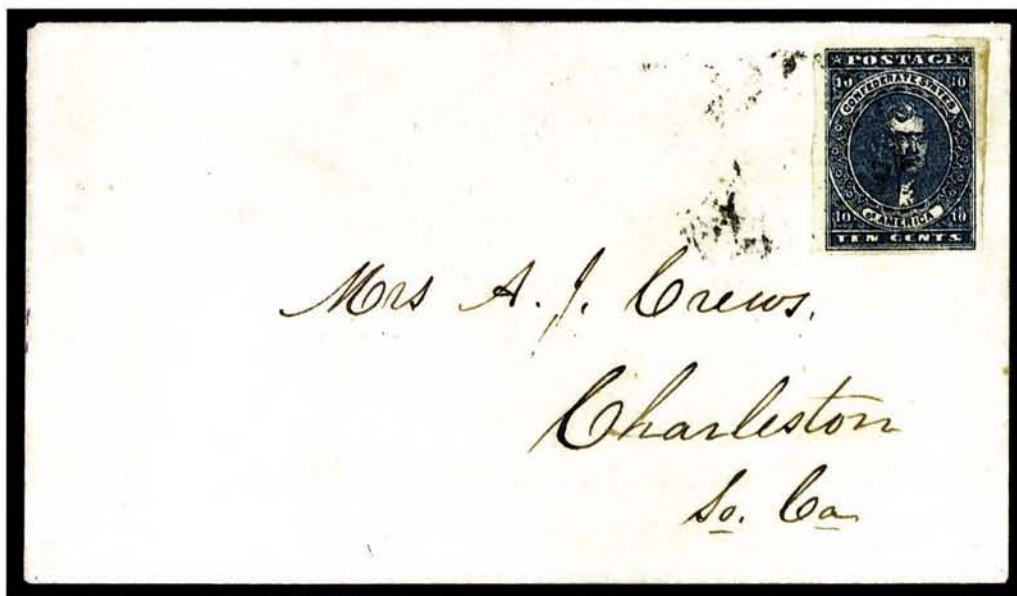 ★ POSTAGE ★
10 10
CONFEDERATE STATES
OF AMERICA
10 10
TEN CENTS.
Mrs A. J. Crews,
Charleston
So. Ca